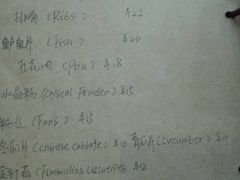 排骨 (Ribs) ¥22
鱼片 (Fish) ¥20
五花肉 (Pork) ¥18
水晶粉 (Crystal Powder) ¥15
粉丝 (Fans) ¥15
冬瓜片 (Chinese cabbage) ¥10 黄瓜片 (Cucumber) ¥10
金针菇 (Flammulina velutipes ¥12